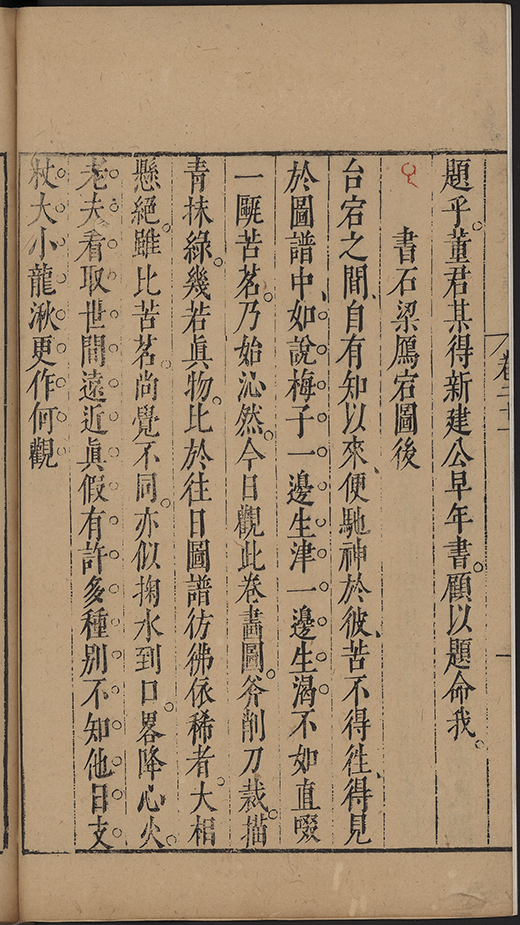 卷二十一
一
題乎。董君某得新建公早年書。顧以題命我。
書石梁鴈宕圖後
台宕之間、自有知以來、便馳神於彼、苦不得徃、得見
於圖譜中、如說梅子、一邊生津、一邊生渴、不如直啜
一甌苦茗。乃始沁然。今日觀此卷畵圖。斧削刀裁。描
青抹綠。幾若眞物。比於往日圖譜彷彿依稀者。大相
懸絕。雖比苦茗。尚覺不同。亦似掬水到口。畧降心火。
老夫看取世間遠近眞假有許多種別不知他日支
杖大小龍湫更作何觀